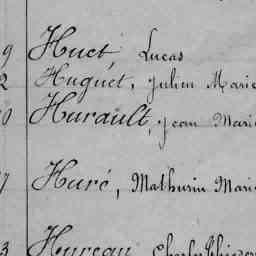 9 Huet, Lucas
2 Huguet, Julien Marie
0 Hurault, Jean Marie
7 Huré, Mathurin Marie
3 Hureau, Charles